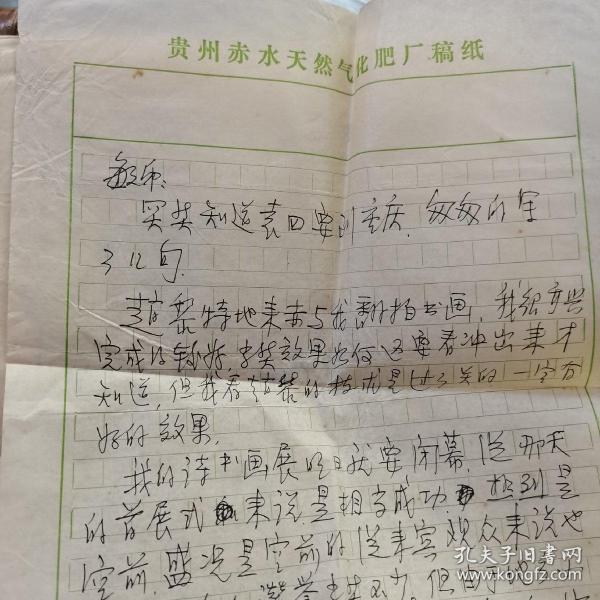 贵州赤水天然气化肥厂稿纸
突然知道袁四要到重庆，匆匆的写
了几句。
特地来赤与我翻拍书画，我很高兴
完成的很好，当然效果如何还要看冲出来才
知道，但我看的技术是过了关的，一定会
好的效果。
我的诗书画展明日就要闭幕，从那天
的首展式来说是相当成功，
空前，盛况是空前的，从来宾观众来说也
但由于
孔夫子旧书网
www.kongfz.com